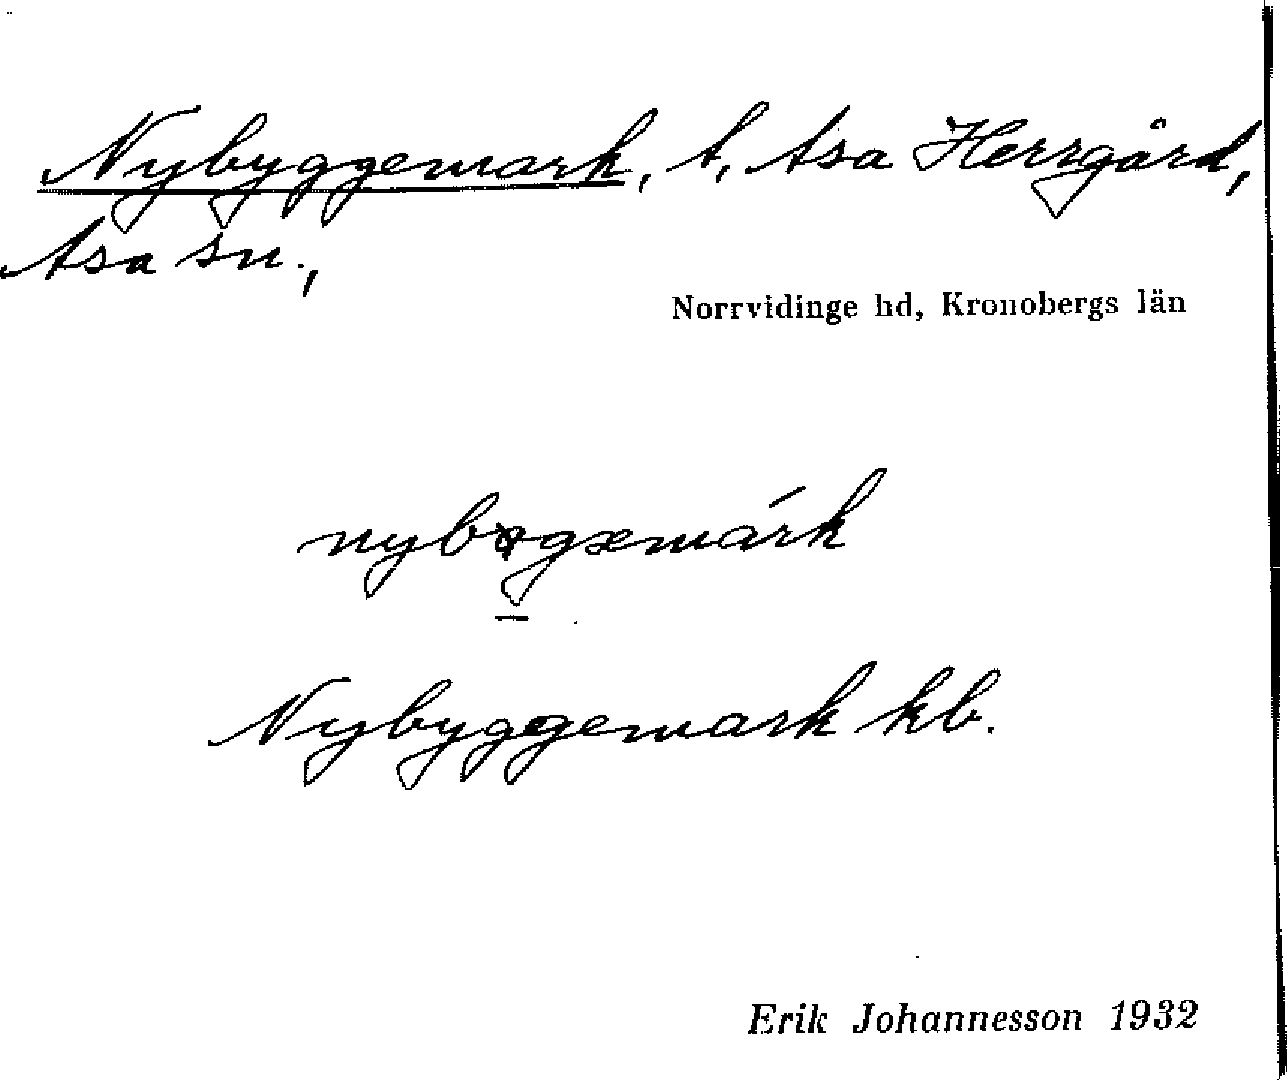 Nybyggemark, t, Asa Herrgård,
Asa sn.,
Norrvidinge hd, Kronobergs län
Nybyggemark kb.
Erik Johannesson 1932